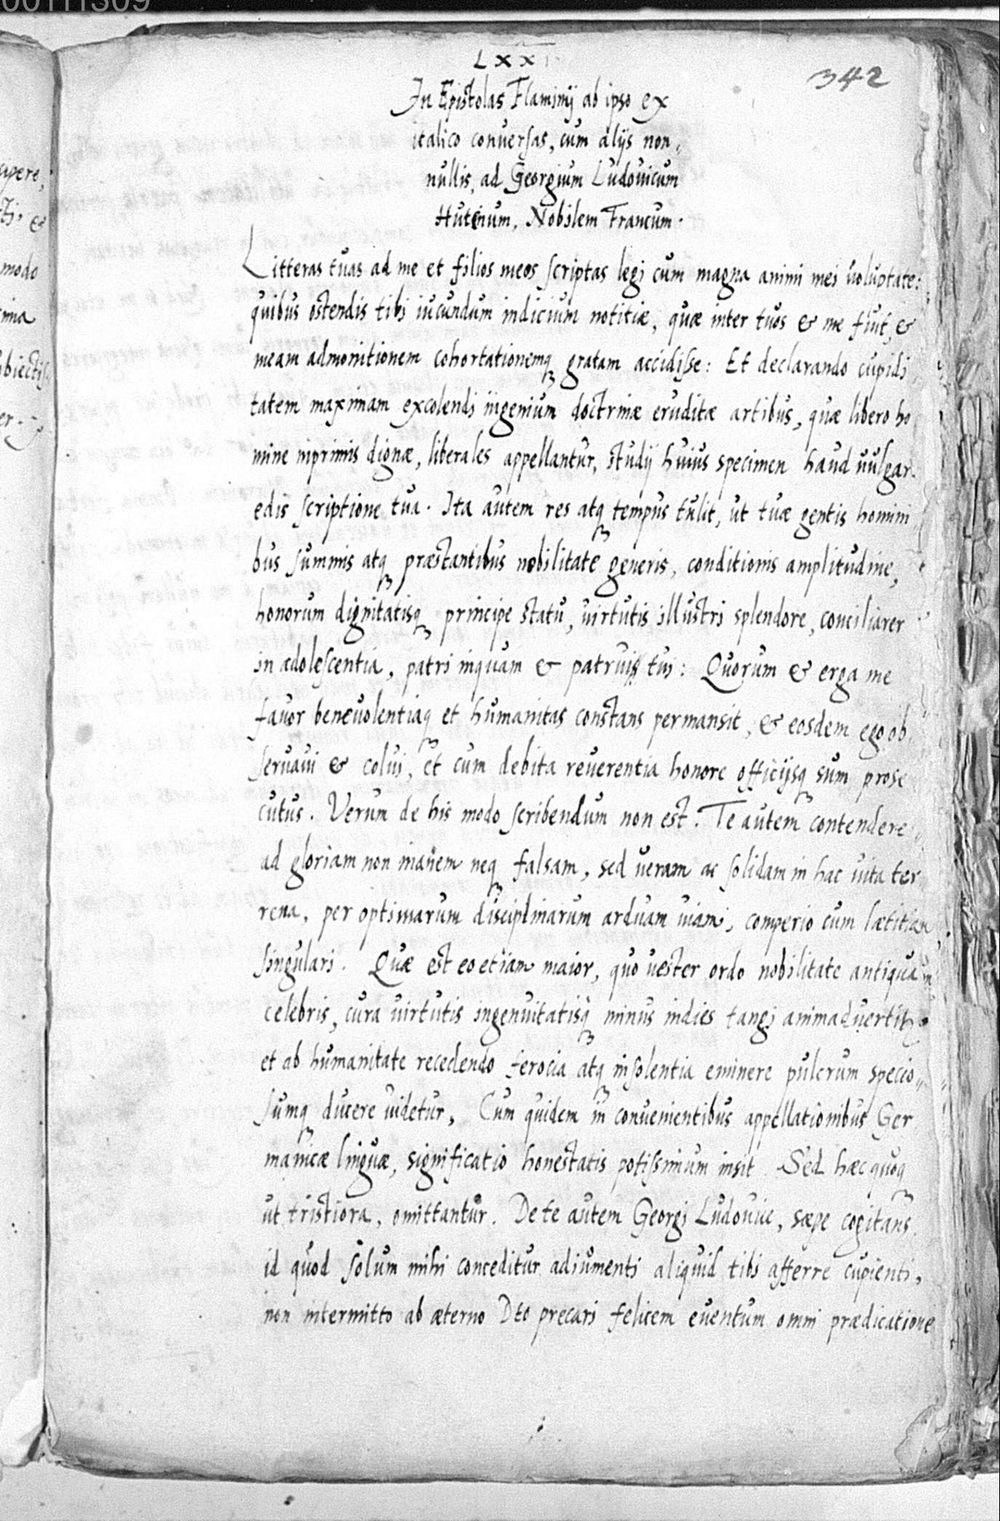 00111309
LXXI
342
In Epistolas Flaminij ab ipso ex
italico conuersas, cum alijs non,
nullis, ad Georgium Ludouicum
Hutenum, Nobilem Francum.
Litteras tuas ad me et filios meos scriptas legi cum magna animi mei uoluptate:
quibus ostendis tibi iucundum indicium notitiæ, quæ inter tuos & me fuit, &
meam admonitionem cohortationemq gratam accidisse: Et declarando cupidi
tatem maximam excolendi ingenium doctrinæ eruditæ artibus, quæ libero ho
mine inprimis dignæ, liberales appellantur, studij huius specimen haud uulgar.
edis scriptione tua. Ita autem res atq tempus tulit, ut tuæ gentis homini
bus summis atq præstantibus nobilitate generis, conditionis amplitudine,
honorum dignitatisq principe statu, uirtutis illustri splendore, conciliarer
in adolescentia, patri inquam & patruis tui: Quorum & erga me
fauor beneuolentiaq et humanitas constans permansit, & eosdem ego ob
seruaui & colui, et cum debita reuerentia honore officijsq sum prose
cutus. Verum de his modo scribendum non est. Te autem contendere
ad gloriam non inanem neq falsam, sed ueram ac solidam in hac uita ter
rena, per optimarum disciplinarum arduam uiam, comperio cum lætitia
singulari. Quæ est eo etiam maior, quo uester ordo nobilitate antiqua
celebris, cura uirtutis ingenuitatisq minus indies tangi animaduertit,
et ab humanitate recedendo ferocia atq insolentia eminere pulcrum specio
sumq ducere uidetur, Cum quidem in conuenientibus appellationibus Ger
manicæ linguæ, significatio honestatis potissimum insit. Sed hæc quoq
ut tristiora, omittantur. De te autem Georgi Ludouice, sæpe cogitans
id quod solum mihi conceditur adiumenti aliquid tibi afferre cupienti,
non intermitto ab æterno Deo precari felicem euentum omni prædicatione